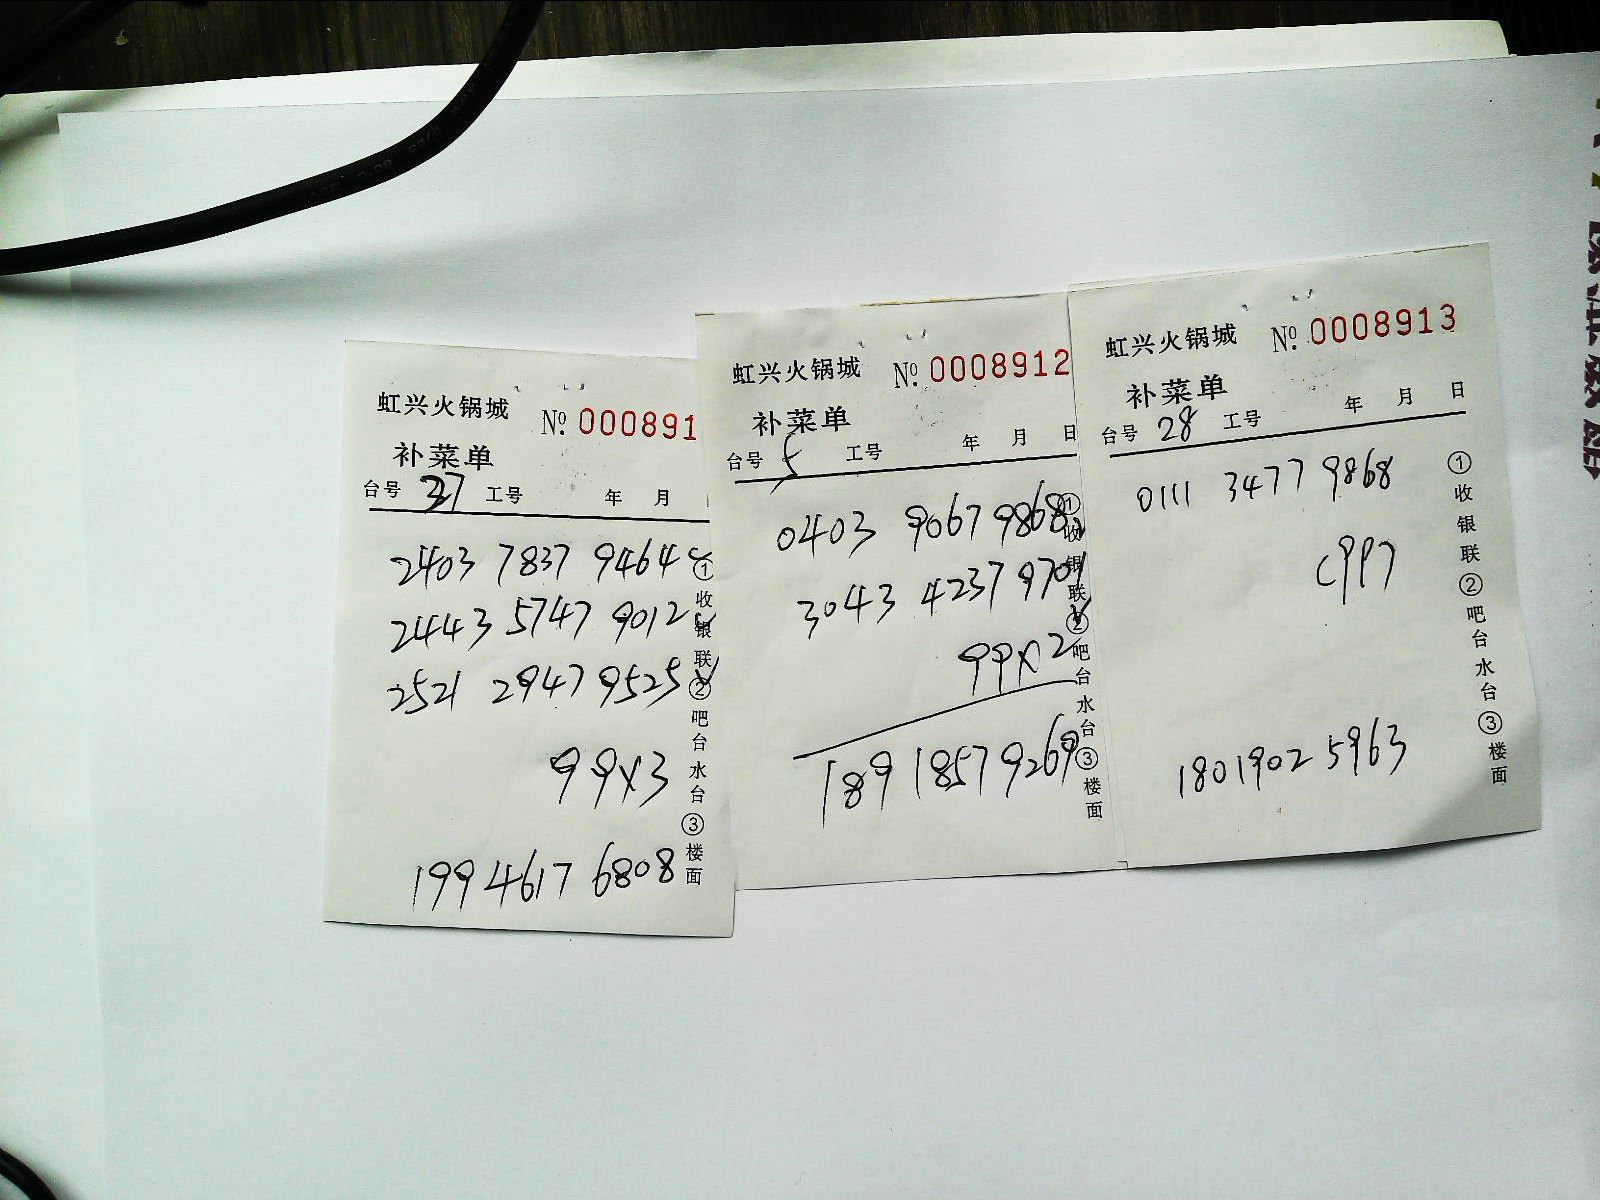 虹兴火锅城 №. 000891
补菜单
台号 37 工号 年 月
2403 7837 9464
2443 5747 9012
2521 2947 9525
99X3
199 4617 6808
①收银联②吧台水台③楼面
虹兴火锅城 №. 0008912
补菜单
台号 5 工号 年 月 日
0403 9067 9868
3043 4237 9701
99X2
189 1857 9269
①收银联②吧台水台③楼面
虹兴火锅城 №. 0008913
补菜单
台号 28 工号 年 月 日
0111 3477 9868
(99)
1801902 5963
①收银联②吧台水台③楼面